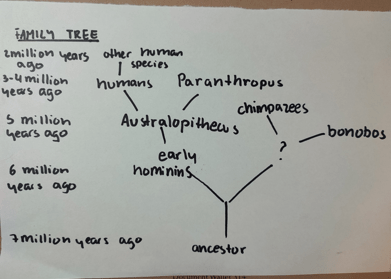 FAMILY TREE
2million years ago
other human species
3-4 million years ago
humans
Paranthropus
chimpazees
5 million years ago
Australopithecus
bonobos
?
early hominins
6 million years ago
7million years ago
ancestor